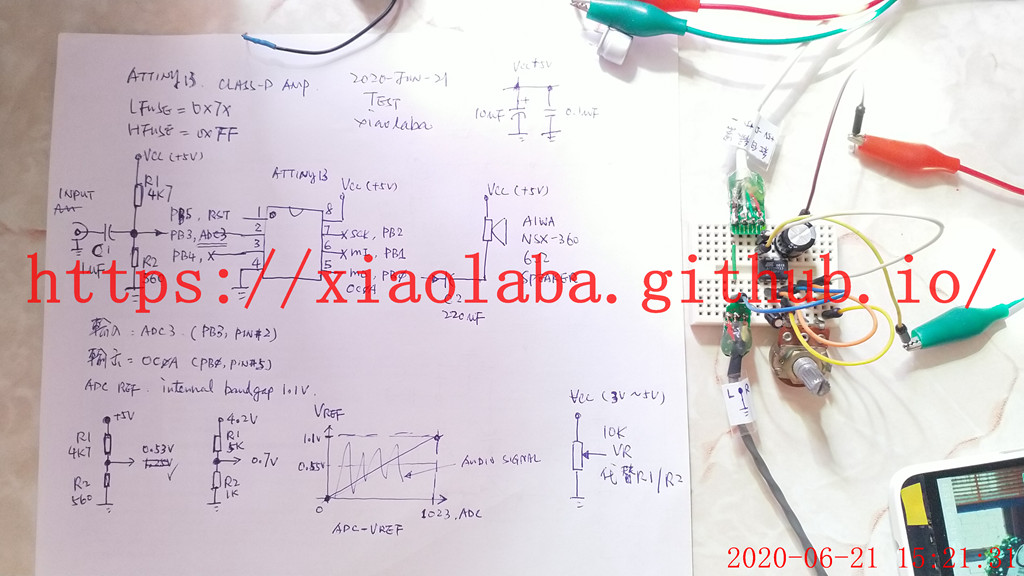 ATTINY13 CLASS-D AMP.
LFUSE = 0x7X
HFUSE = 0xFF
2020-JUN-21
TEST
xiaolaba
Vcc +5V
10uF
+
0.1uF
Vcc (+5V)
R1
4K7
INPUT
C1
1uF
R2
560
ATTINY13
PB5, RST
PB3, ADC3
PB4, X
1
2
3
4
8
7
6
5
Vcc (+5V)
X SCK, PB2
X MI, PB1
OC0A
Vcc (+5V)
AIWA
NSX-360
6Ω
SPEAKER
C2
220uF
https://xiaolaba.github.io/
輸入 : ADC3. (PB3, PIN#2)
輸出 = OC0A (PB0, PIN#5)
ADC REF. internal bandgap 1.1V.
+5V
R1
4K7
0.53V
R2
560
4.2V
R1
5K
0.7V
R2
1K
VREF
1.1V
0.55V
0
1023, ADC
AUDIO SIGNAL
ADC-VREF
Vcc (3V~5V)
10K
VR
代替R1/R2
L R
2020-06-21 15:21:31